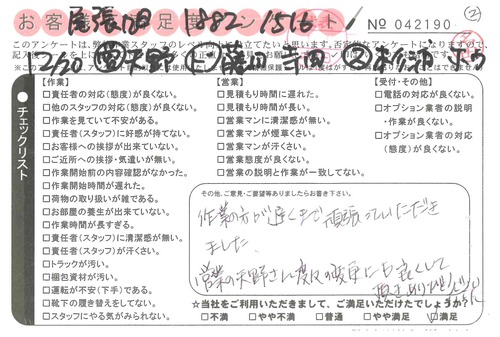 お客様満足度アンケート
尾張旭 1882-1516
№ 042190
②
12/20 天野 吉田 ②
●チェックリスト
【作業】
□責任者の対応(態度)が良くない。
□他のスタッフの対応(態度)が良くない。
□作業を見ていて不安がある。
□責任者(スタッフ)に好感が持てない。
□お客様への挨拶が出来ていない。
□ご近所への挨拶・気遣いが無い。
□作業開始前の内容確認がなかった。
□作業開始時間が遅れた。
□荷物の取り扱いが雑である。
□お部屋の養生が出来ていない。
□作業時間が長すぎる。
□責任者(スタッフ)に清潔感が無い。
□責任者(スタッフ)が汗くさい。
□トラックが汚い。
□梱包資材が汚い。
□運転が不安(下手)である。
□靴下の履き替えをしてない。
□スタッフにやる気がみられない。
【営業】
□見積もり時間に遅れた。
□見積もり時間が長い。
□営業マンに清潔感が無い。
□営業マンが煙草くさい。
□営業マンが汗くさい。
□営業態度が良くない。
□営業の説明と作業が一致してない。
【受付・その他】
□電話の対応が良くない。
□オプション業者の説明
・作業が良くない。
□オプション業者の対応
(態度)が良くない。
その他、ご意見・ご要望等ありましたらお書き下さい。
作業の方が遅くまで頑張っていただき
ました。
営業の天野さん度々の変更にも良くして
頂きありがとうございました
☆当社をご利用いただきまして、ご満足いただけたでしょうか?
□不満 □やや不満 □普通 □やや満足 ☑満足